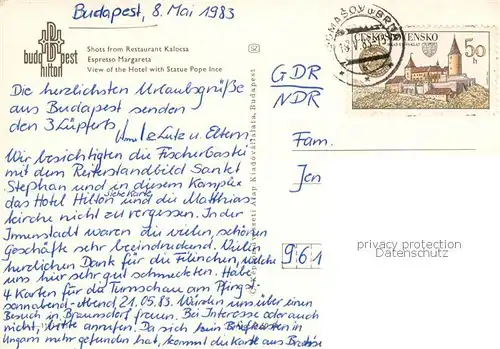 Budapest, 8. Mai 1983
budapest
hilton
Shots from Restaurant Kalocsa
Espresso Margareta
View of the Hotel with Statue Pope Ince
ČESKOSLOVENSKO
50 h
GDR
NDR
Die herzlichsten Urlaubsgrüße
aus Budapest senden
den 3 Lüpferts!
Lutz u. Eltern,
Wir besichtigten die Fischerbastei
mit dem Reiterstandbild Sankt
Stephan und in diesem Komplex
siehe Karte
das Hotel Hilton und die Matthias-
kirche nicht zu vergessen. In der
Innenstadt waren die vielen, schönen
Geschäfte sehr beeindruckend. Vielen
herzlichen Dank für die Filinchen, welche
uns hier sehr gut schmeckten. Habe
4 Karten für die Turnschau am Pfingst-
sonnabend-Abend 21.05.83. Würden uns über einen
Besuch in Braunsdorf freuen. Bei Interesse oder auch
nicht, bitte anrufen. Da sich kein Briefkasten in
Ungarn mehr gefunden hat, kommt die Karte aus
Fam.
961
privacy protection
Datenschutz